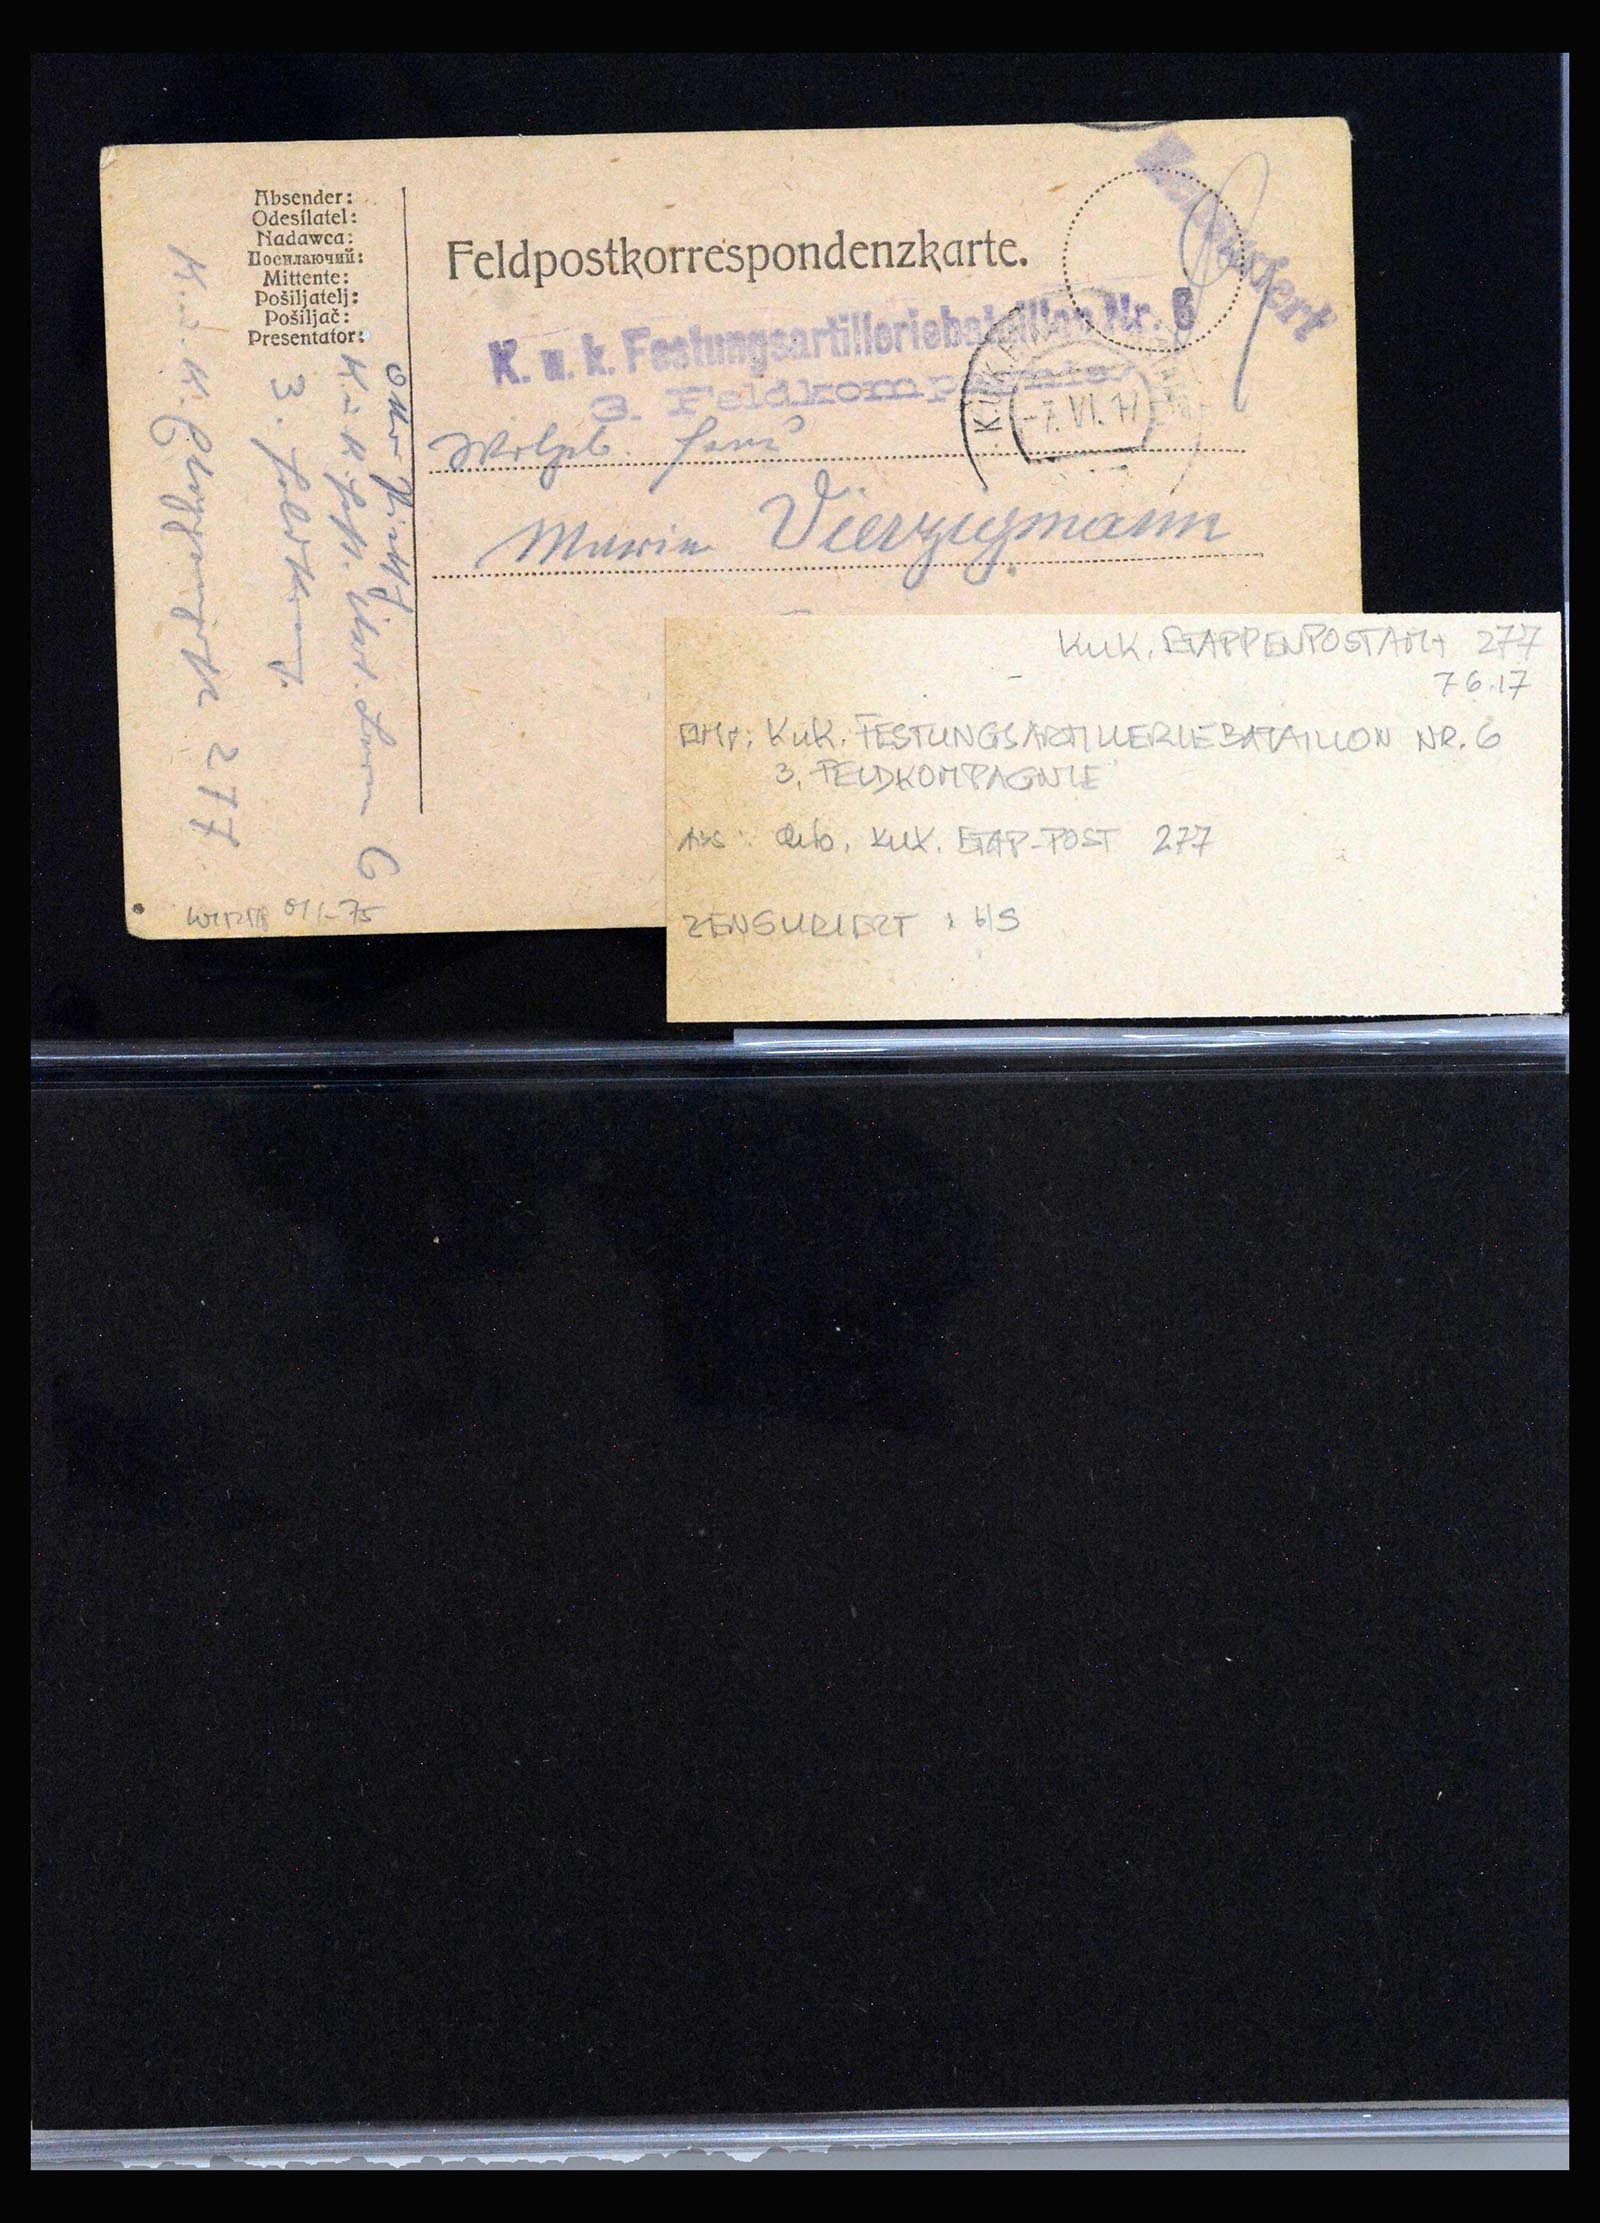 Absender:
Odesílatel:
Nadawca:
Посилаючий:
Mittente:
Pošiljatelj:
Pošiljač:
Presentator:
Feldpostkorrespondenzkarte.
Zensuriert
K. u. k. Festungsartilleriebataillon Nr. 6
3. Feldkompagnie
-7.VI.17
Wohlgeb. Frau
Maria Vierzigmann
K. u. K. Baon 6
3. Feldkomp.
K. u. K. Etappenpost 277
011-75
KuK. ETAPPENPOSTAMT 277
7 6.17
KuK. FESTUNGSARTILLERIEBATAILLON NR. 6
3. FELDKOMPAGNIE
ABS: KuK. ETAP-POST 277
ZENSURIERT